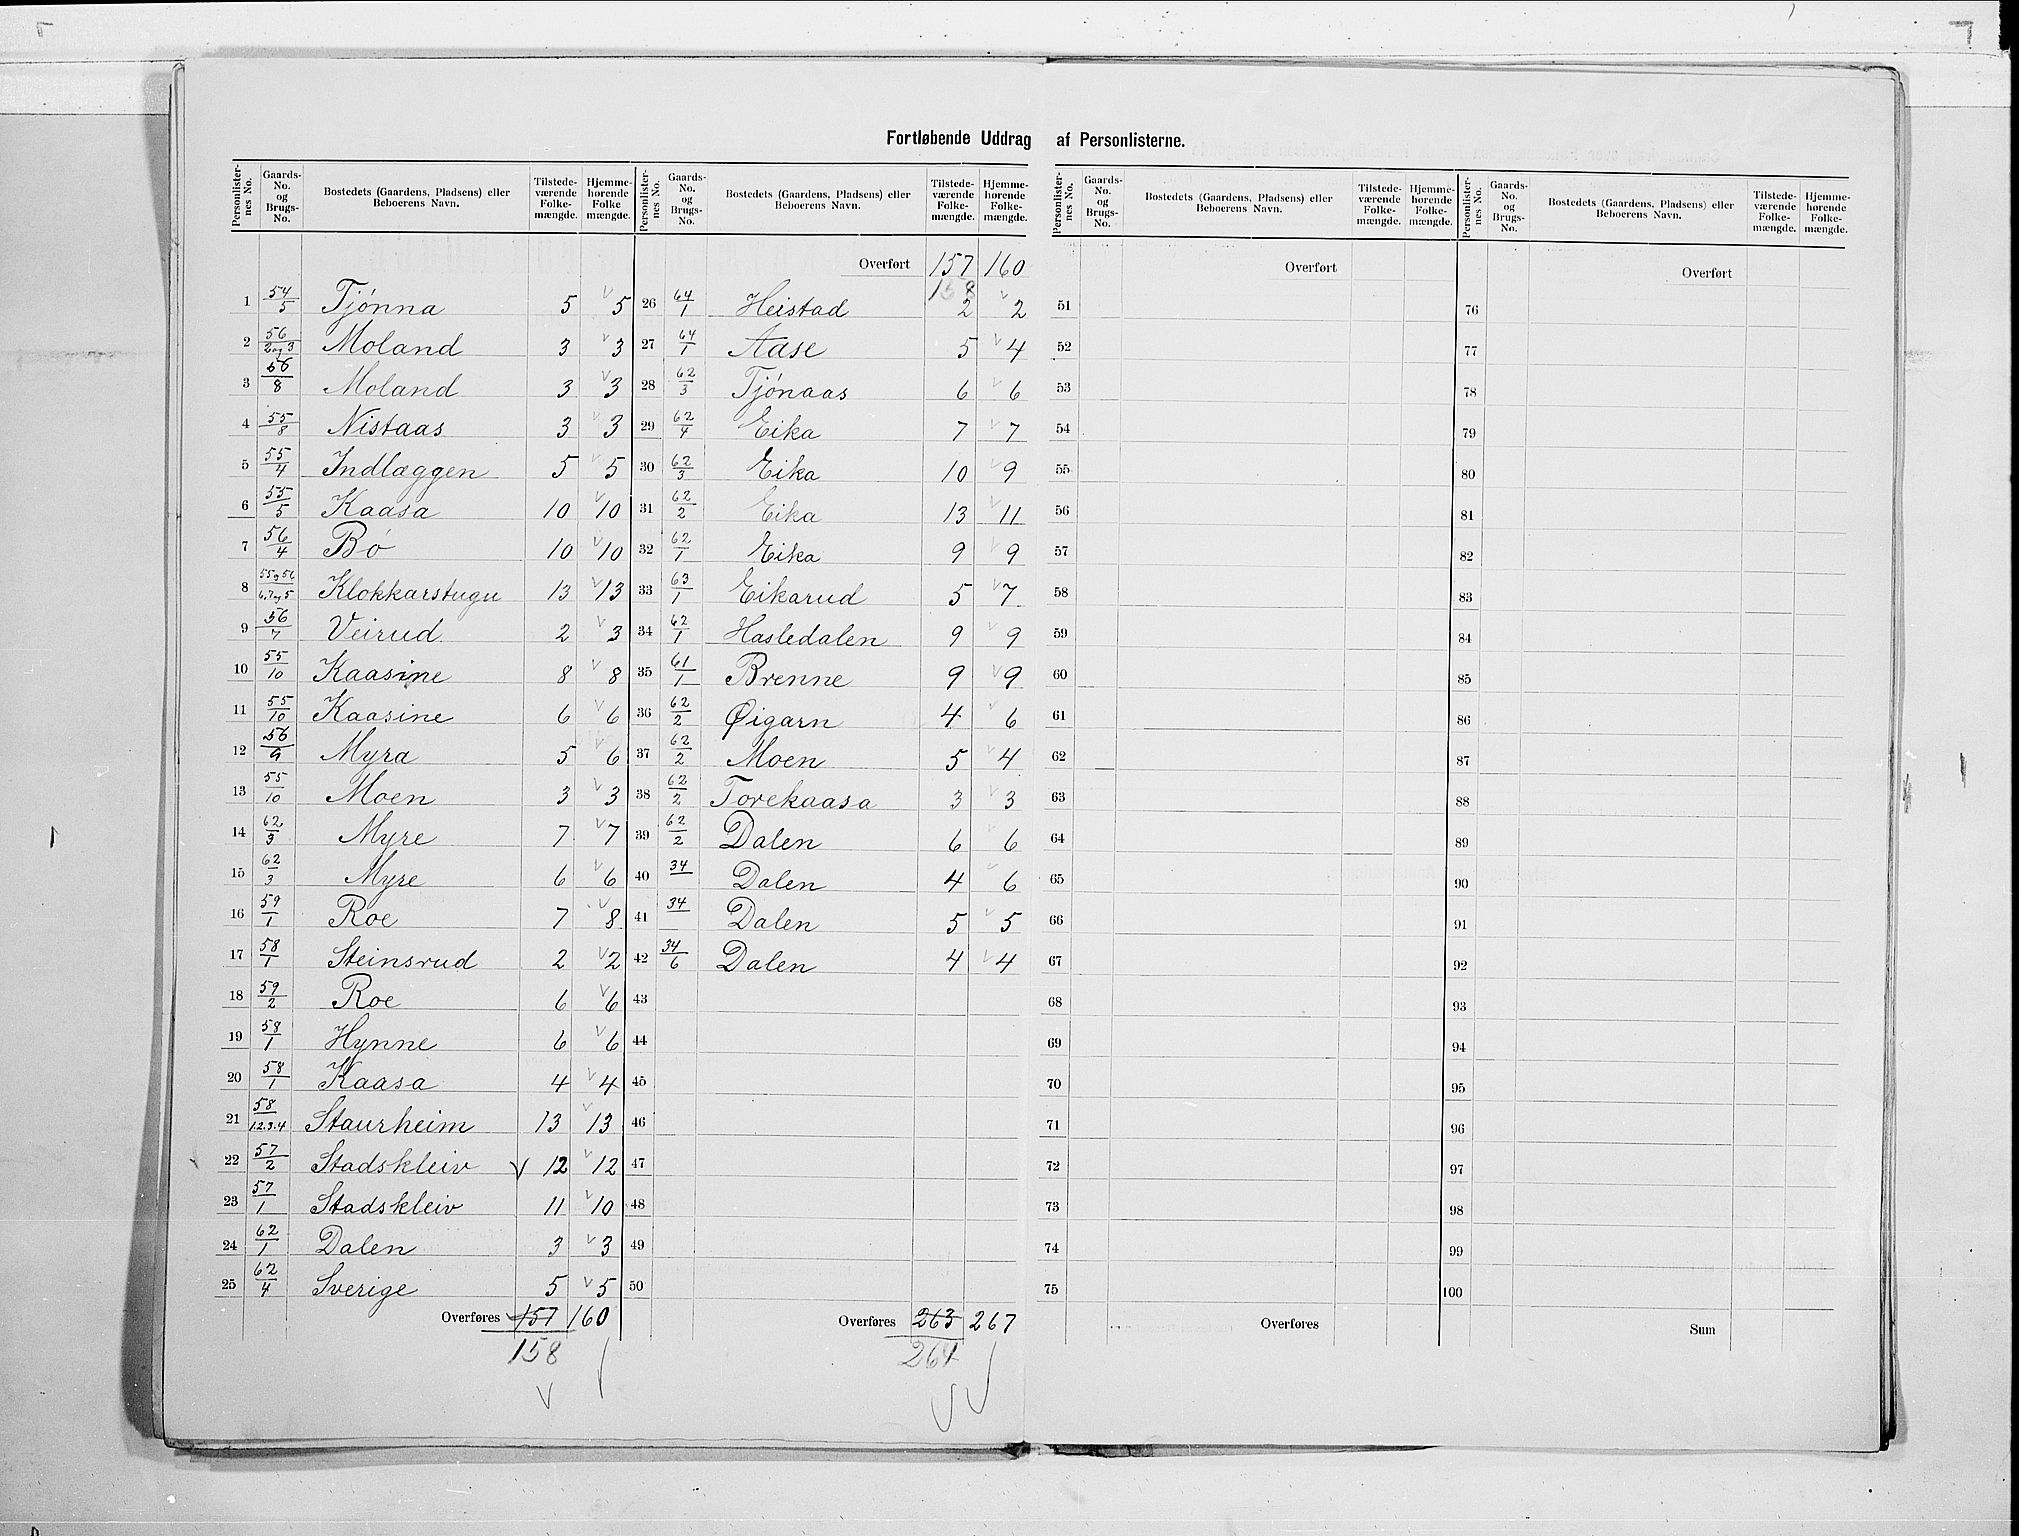 Fortløbende Uddrag af Personlisterne.
Personlisternes No. | Gaards-No. og Brugs-No. | Bostedets (Gaardens, Pladsens) eller Beboerens Navn. | Tilstedeværende Folkemængde. | Hjemmehørende Folkemængde.
1 54/5 Tjónna 5 v 5
2 56/2 og 3 Moland 3 v 3
3 56/8 Moland 3 v 3
4 55/8 Nistaas 3 v 3
5 55/4 Indlæggen 5 v 5
6 55/5 Kaasa 10 v 10
7 56/4 Bó 10 v 10
8 55 og 56/6,7 og 5 Klokkarstugu 13 v 13
9 56/7 Veirud 2 v 3
10 55/10 Kaasine 8 v 8
11 55/10 Kaasine 6 v 6
12 56/9 Myra 5 v 6
13 55/10 Moen 3 v 3
14 62/3 Myre 7 v 7
15 62/3 Myre 6 v 6
16 59/1 Roe 7 v 8
17 58/1 Steinsrud 2 v 2
18 59/2 Roe 6 v 6
19 58/1 Hynne 6 v 6
20 58/1 Kaasa 4 v 4
21 58/1.2.3.4 Staurheim 13 v 13
22 57/2 Stadskleiv v 12 v 12
23 57/1 Stadskleiv 11 v 10
24 62/1 Dalen 3 v 3
25 62/4 Sverige 5 v 5
Overføres 157 160
158
Personlisternes No. | Gaards-No. og Brugs-No. | Bostedets (Gaardens, Pladsens) eller Beboerens Navn. | Tilstedeværende Folkemængde. | Hjemmehørende Folkemængde.
Overført 157 160
158
26 64/1 Heistad 2 v 2
27 64/1 Aase 5 v 4
28 62/3 Tjónaas 6 v 6
29 62/4 Eika 7 v 7
30 62/3 Eika 10 v 9
31 62/2 Eika 13 v 11
32 62/1 Eika 9 v 9
33 63/1 Eikarud 5 v 7
34 62/1 Hasledalen 9 v 9
35 61/1 Brenne 9 v 9
36 62/2 Øigarn 4 v 6
37 62/2 Moen 5 v 4
38 62/2 Torekaasa 3 v 3
39 62/2 Dalen 6 v 6
40 34 Dalen 4 v 6
41 34 Dalen 5 v 5
42 34/6 Dalen 4 v 4
43
44
45
46
47
48
49
50
Overføres 263 267
264
Personlisternes No. | Gaards-No. og Brugs-No. | Bostedets (Gaardens, Pladsens) eller Beboerens Navn. | Tilstedeværende Folkemængde. | Hjemmehørende Folkemængde.
Overført
51
52
53
54
55
56
57
58
59
60
61
62
63
64
65
66
67
68
69
70
71
72
73
74
75
Overføres
Personlisternes No. | Gaards-No. og Brugs-No. | Bostedets (Gaardens, Pladsens) eller Beboerens Navn. | Tilstedeværende Folkemængde. | Hjemmehørende Folkemængde.
Overført
76
77
78
79
80
81
82
83
84
85
86
87
88
89
90
91
92
93
94
95
96
97
98
99
100
Sum